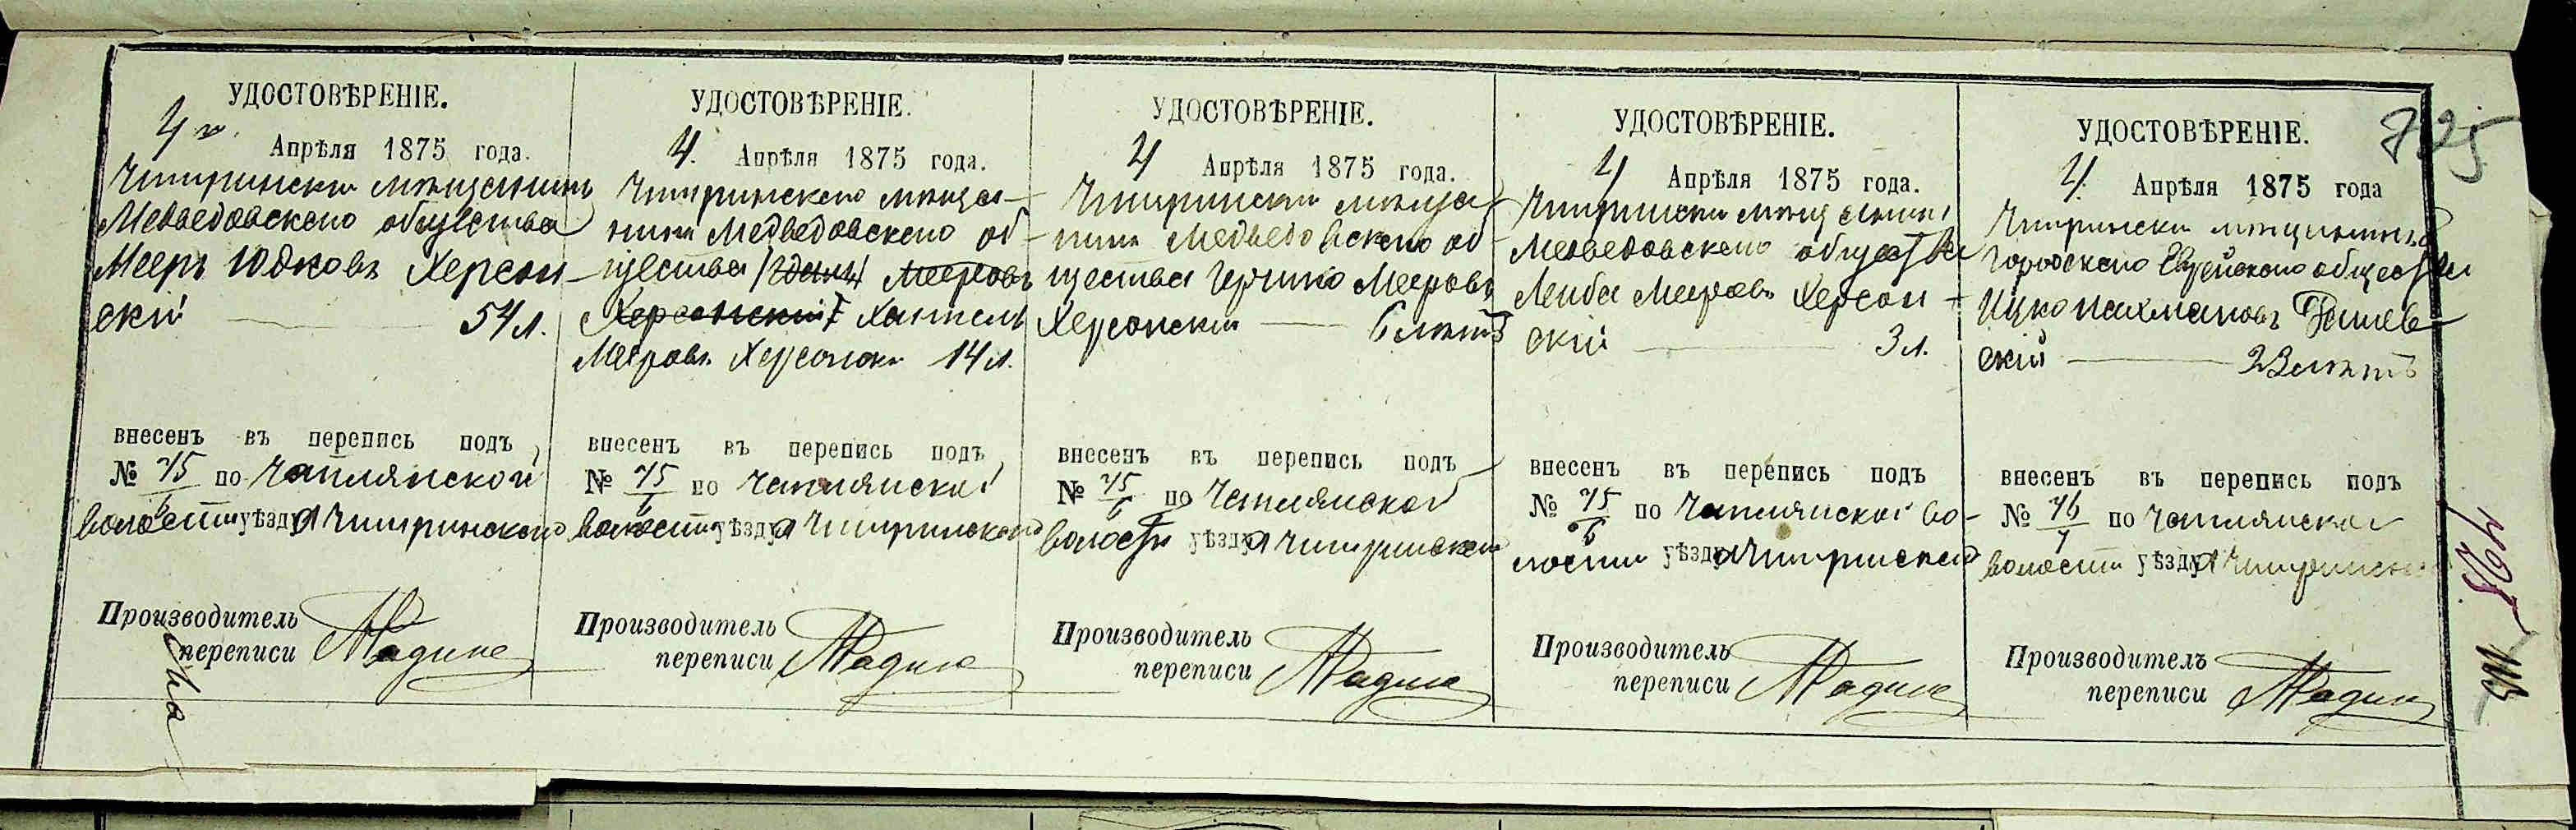 УДОСТОВѢРЕНІЕ.
4го Апрѣля 1875 года.
Чигиринский мѣщанинъ
Медведовскаго общества
Мееръ Юдковъ Херсон-
ский — 54 л.
внесенъ въ перепись подъ
№ 75/6 по Чаплянской
волости уѣзда Чигиринскаго
Производитель
переписи

УДОСТОВѢРЕНІЕ.
4. Апрѣля 1875 года.
Чигиринскаго мѣща-
нина Медведовскаго об-
щества Мееровъ
Херсонский Хаимель
Мееровъ Херсонски 14 л.
внесенъ въ перепись подъ
№ 75/6 по Чаплянской
волости уѣзда Чигиринскаго
Производитель
переписи

УДОСТОВѢРЕНІЕ.
4 Апрѣля 1875 года.
Чигирински мѣща-
нинъ Медведовскаго об-
щества Гершко Мееровъ
Херсонски — 6 лѣтъ
внесенъ въ перепись подъ
№ 75/6 по Чаплянской
волости уѣзда Чигиринскаго
Производитель
переписи

УДОСТОВѢРЕНІЕ.
4 Апрѣля 1875 года.
Чигирински мѣщанинъ
Медведовскаго общества
Лейба Мееровъ Херсон-
ский — 3 л.
внесенъ въ перепись подъ
№ 75/6 по Чаплянской во-
лости уѣзда Чигиринскаго
Производитель
переписи

725
УДОСТОВѢРЕНІЕ.
4. Апрѣля 1875 года
Чигирински мѣщанинъ
Городскаго Еврейскаго общества
Ицко Нахмановъ
ский — 23 лѣтъ
внесенъ въ перепись подъ
№ 76/7 по Чаплянской
волости уѣзда Чигиринска
Производитель
переписи